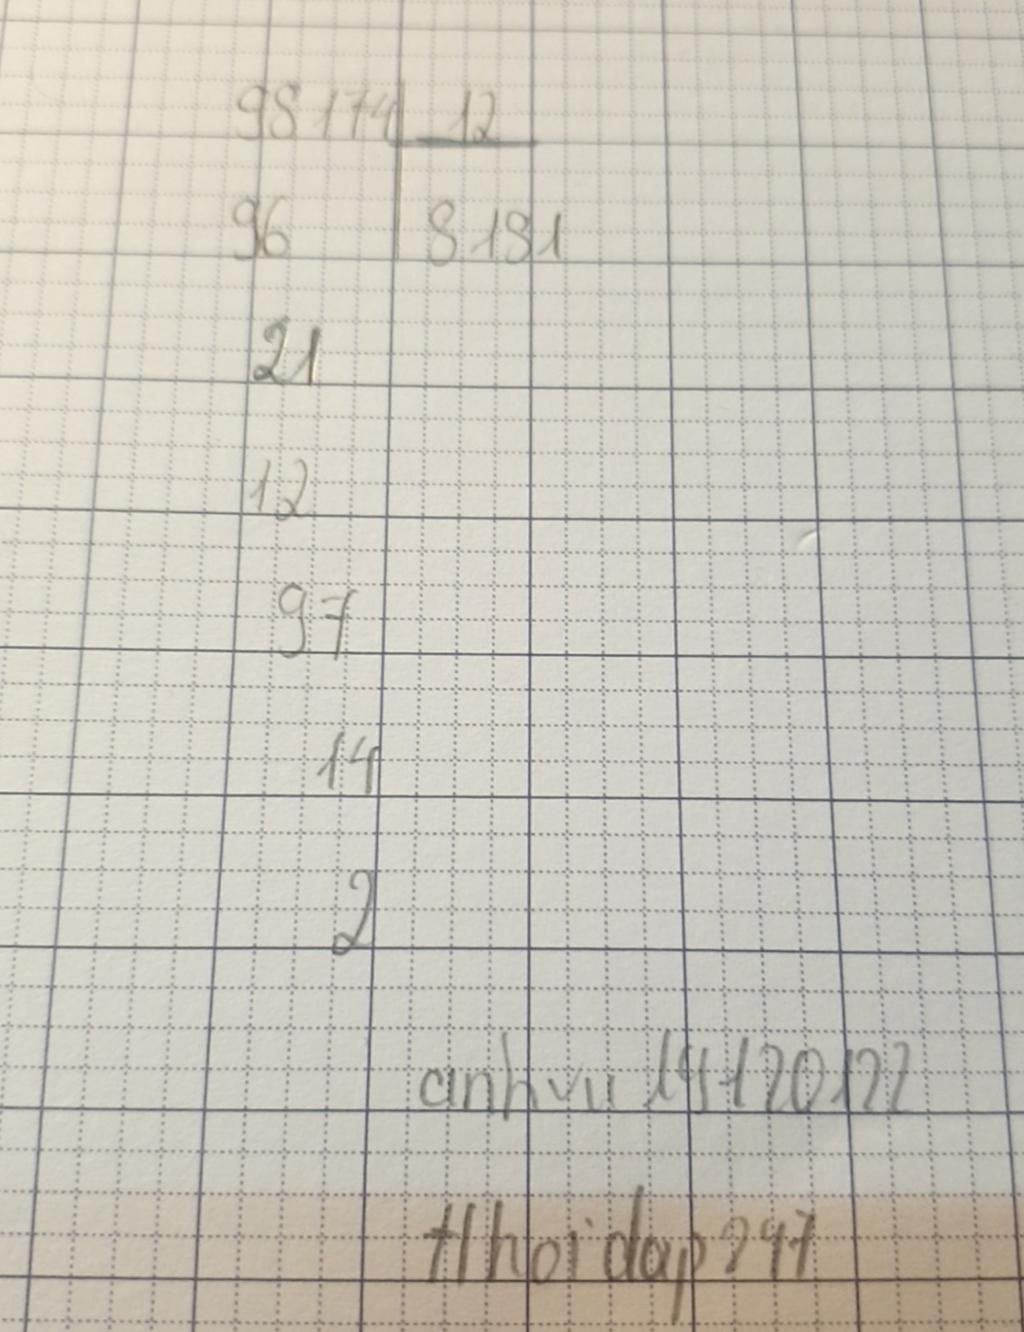 98174 12
96 8181
21
12
97
14
2
anhvu
hoidap247